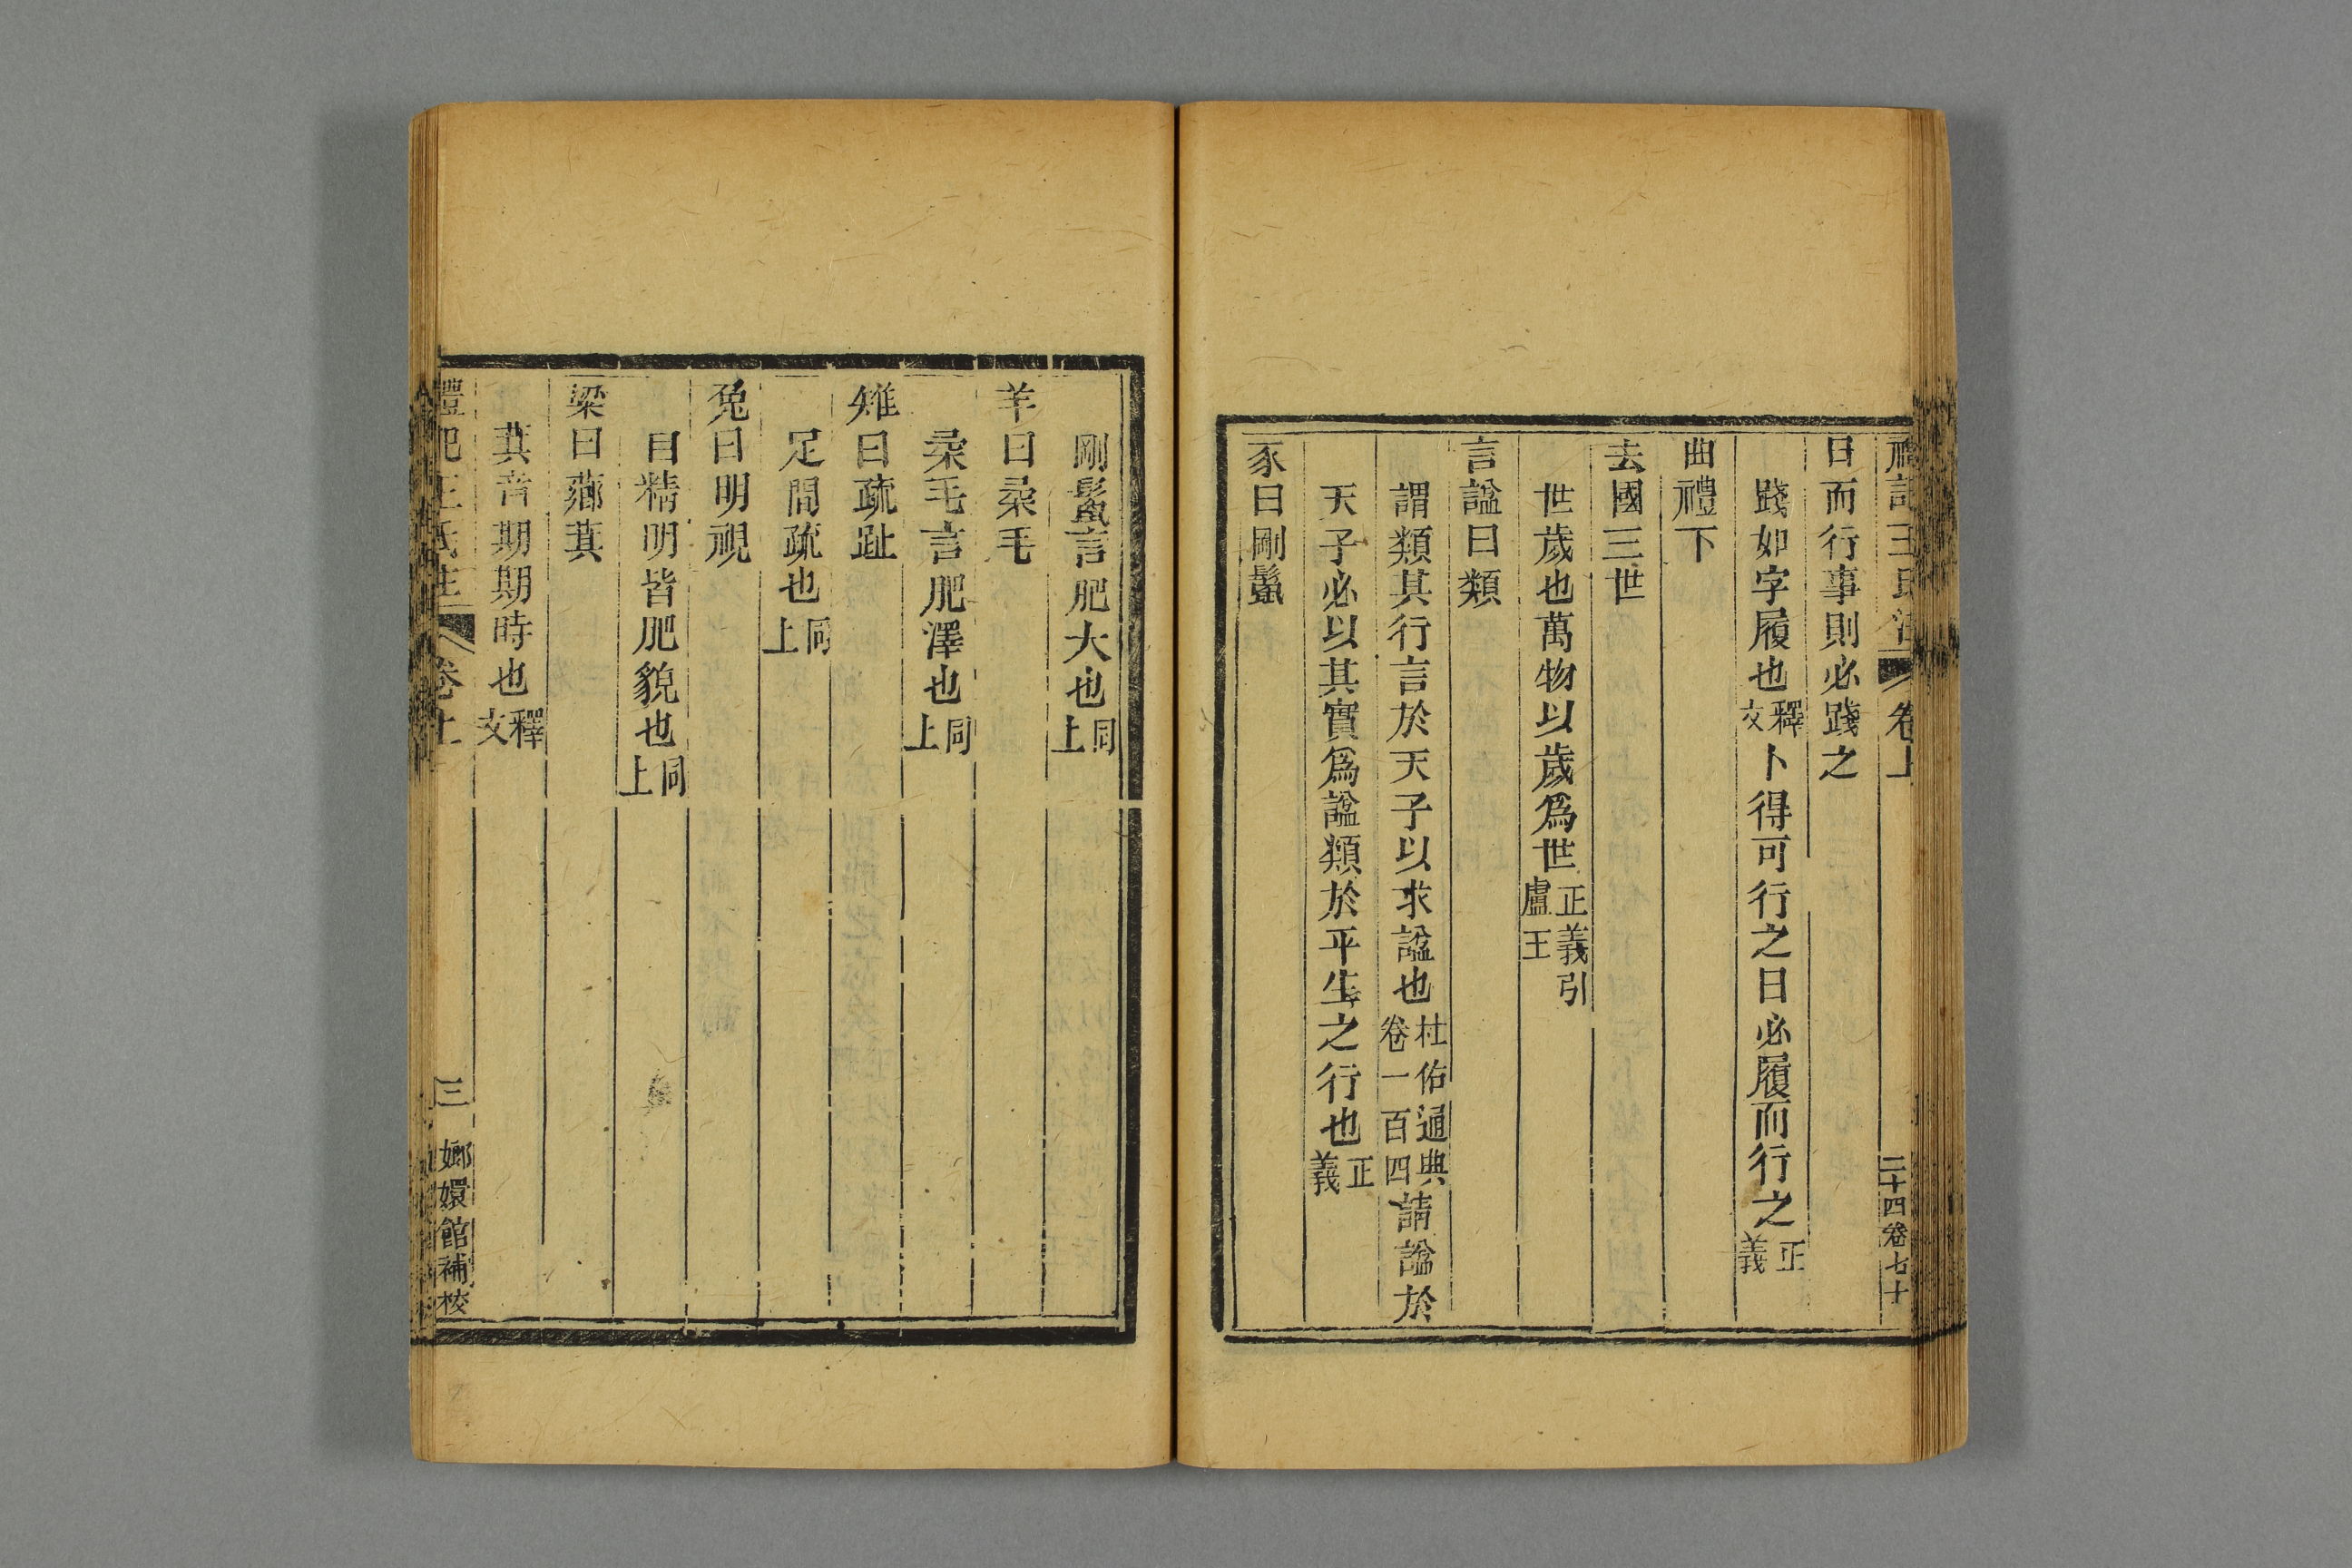 禮記王氏注 卷上 二十四卷七十
日而行事則必踐之
踐如字履也釋文卜得可行之日必履而行之正義
曲禮下
去國三世
世歲也萬物以歲爲世正義引盧王
言諡曰類
謂類其行言於天子以求諡也杜佑通典卷一百四請諡於
天子必以其實爲諡類於平生之行也正義
豕曰剛鬣
剛鬣言肥大也同上
羊曰柔毛
柔毛言肥澤也同上
雉曰疏趾
足間疏也同上
兔曰明視
目精明皆肥貌也同上
梁曰薌萁
萁音期期時也釋文
禮記王氏注 卷上 三 嫏嬛館補校